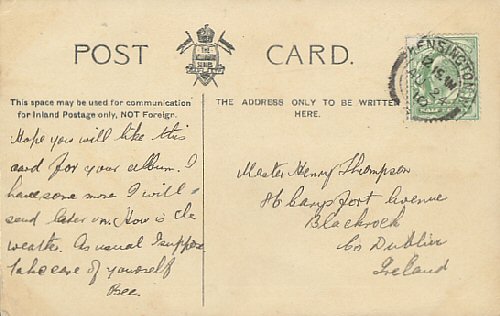 POST CARD.
This space may be used for communication
for Inland Postage only, NOT Foreign.
THE ADDRESS ONLY TO BE WRITTEN
HERE.
KENSINGTON
Hope you will like this
card for your album. I
have some more I will
send later on. How is the
weather. As usual I suppose
take care of yourself
Master Henry Thompson
Avenue
Blackrock
Co Dublin
Ireland